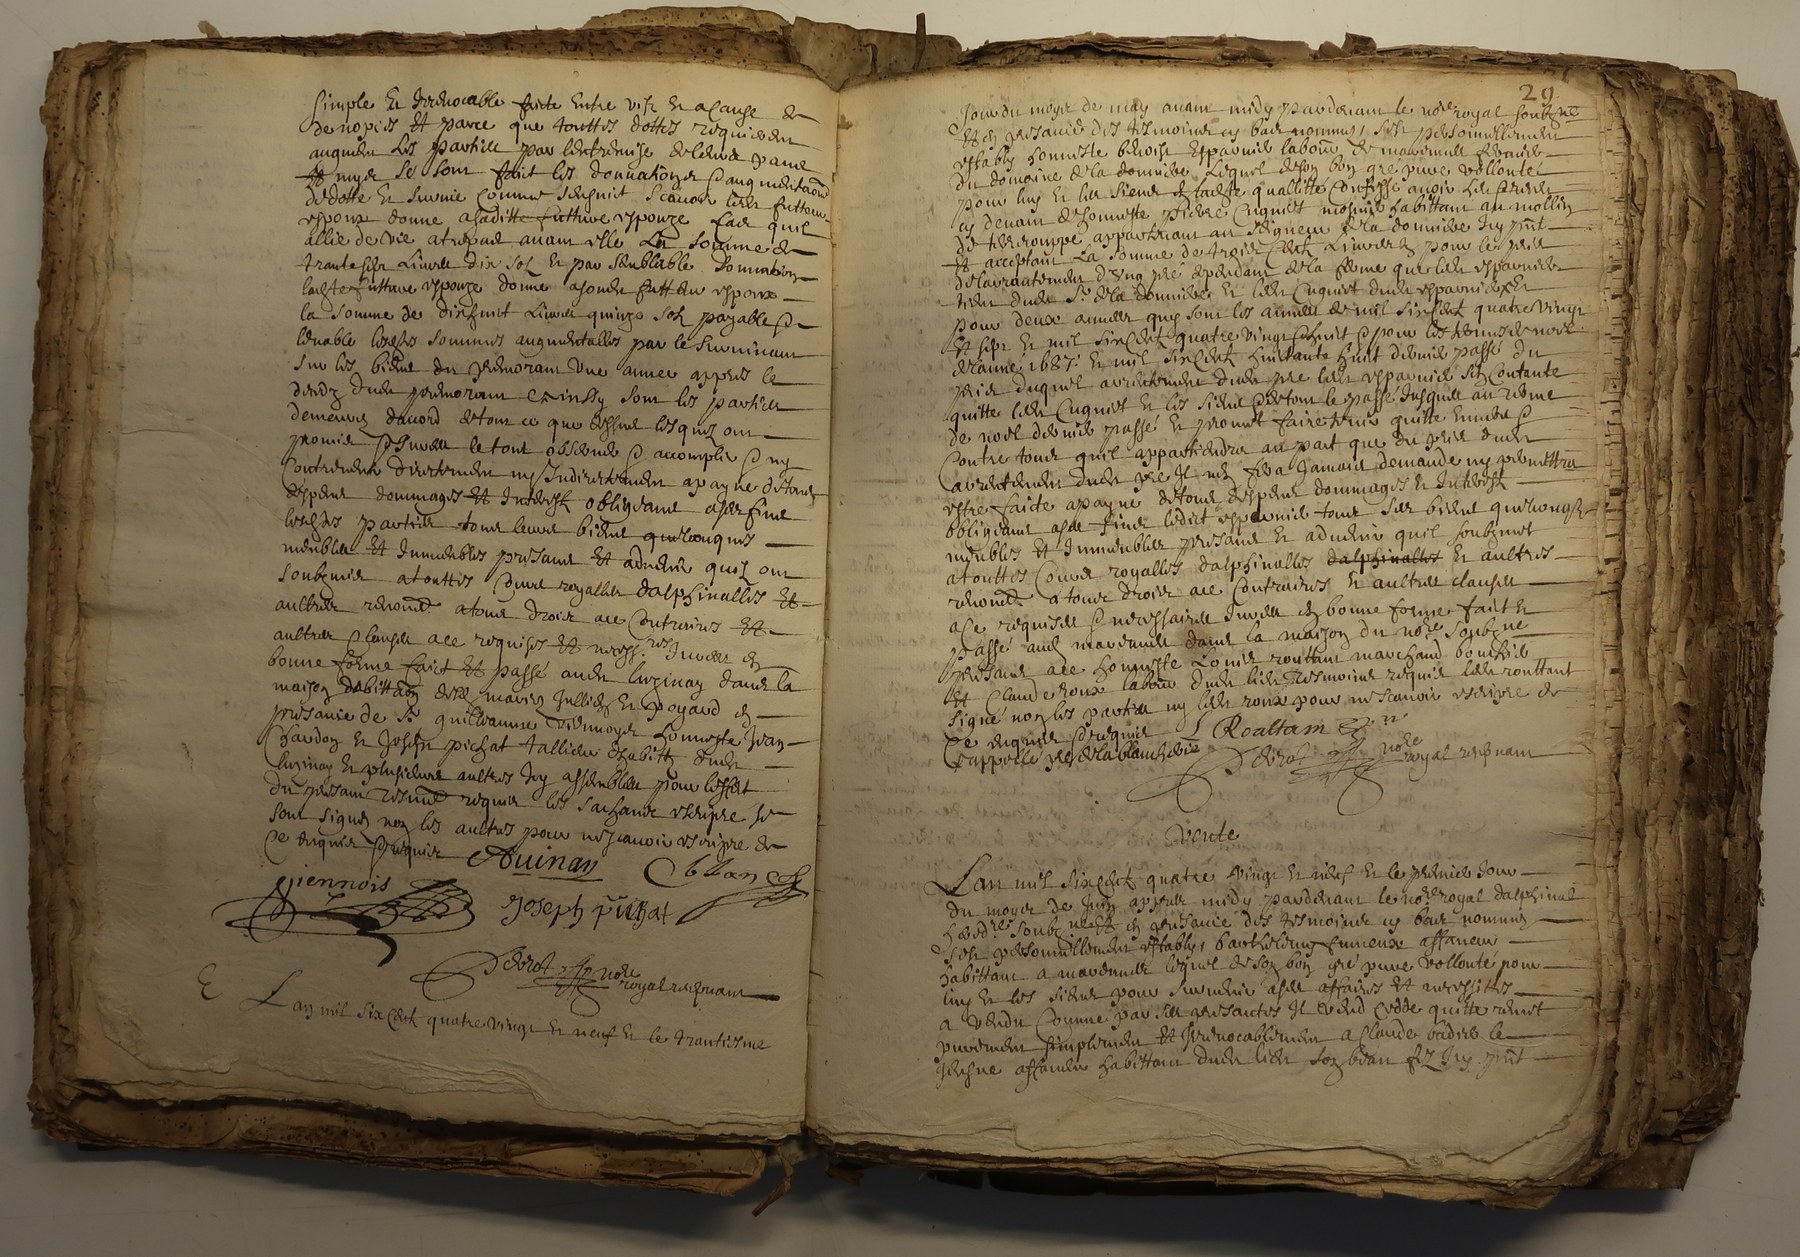 simple et Irrevocable faicte entre vifz et a cause de
de nopces et parce que touttes dottes requierent
augment les parties par lentremise de leurs parans
et amys se sont fait les donnations et augmentaons
de dotte et survie comme sensuit scavoir ledt futtur
espoux donne a saditte futture espouze cas quil
allie de vie a trepas avant elle la somme de
trante six livres dix sols et par semblable donnation
laditte futture espouze donne a sondt futtur espoux
la somme de dix huit livres quinze sols payables et
levable lesdtes sommes augmentalles par le survivant
sur les biens du premorant une annee appres le
deces dudt premorant et ainsy sont les parties
demeurees daccord de tout ce que dessus lesquels ont
promis et Jurer le tout observer et accomplir et ny
contrevenir directement ny Indirectement a payne de tous
despens dommages et Interests obligeant a ses fins
lesdtes parties tous leurs biens quelconques
meubles et Immeubles presans et advenir quils ont
soubzmis a touttes cours royalles dalphinalles et
aultres renoncé a tous droits ace contraires et
aultres clauses ace requises et necessres Jurées en
bonne forme faict et passé audt luzinay dans la
maison dhabittaon desdts maries Jullien et poyard en
presance de Sr guilliaume Viennois honneste Jean
Chardon et Joseph pichat tallieur dhabitz dudt
luzinay et plusieurs aultres Icy assembles pour leffect
du presant resumé requis les sachants escripre se
sont signes non les aultres pour ne scavoir escripre de
ce enquis et requis Avinan C blanc
giennois
Joseph pichat
Perrot nore
royal recepvant
Lan mil six cent quatre vingt et neuf et le trantiesme
29
Jour du moys de may avant midy pardevant le nore royal soubzné
et en presance des tesmoins cy bas nommes, sest personnellement
estably honneste benoist espparvier labour de marennes fermier
du domaine de la donniere lequel de son bon gré pure vollonté
pour luy et les siens et laditte quallitte confesse avoir heu et receu
cy devant de honneste pierre Cuguiet mosnier habittant au mollin
de terrouppe appartenant au seigneur de la donniere Icy pnt
et acceptant la somme de trois cent Livres pour le prix
de larrantement dung pré dependant de la ferme que ledt espparvier
tient dudt Sr de la donniere et ledt Cuguiet dudt espparvier et
pour deux annees quy sont les annees de mil six cent quatre vingt
et sept et mil six cent quatre vingt et huit et pour les termes de noel
de lanné 1687 et mil six cent huittante huit dernier passé du
prix duquel arrentement dudt pre ledt espparvier se contante
quitte ledt Cuguiet et les siens et de tout le passé Jusques au terme
de noel dernier passé et promet faire tenir quitte envers et
contre tous quil appartiendra au pact que du prix dudt
arrentement dudt pré Il nen fera Jamais demande ny permettra
estre faicte a payne de tous despens dommages et Interests
obligeant a ses fins ledict espparvier tous ses biens quelconques
meubles et Immeubles presans et advenir quil soubzmet
a touttes cours royalles dalphinalles dalphinalles et aultres
renoncé a tous droits ace contraires et aultres clauses
ace requises et necessaires Jurees en bonne forme fait et
passé audt marennes dans la maison du nore soubzné
presans ace honneste Louis routtant marchand boucher
et Claude roux labour dudt lieu tesmoins requis ledt routtant
signé non les parties ny ledt roux pour ne scavoir escripre de
ce enquis et requis L Roaltam
Perrot nore
royal recepvant
vente
Lan mil six cent quatre vingt et neuf et le premier Jour
du moys de Juin appres midy pardevant le nore royal dalphinal
hered.re soubzné et en presance des tesmoins cy bas nommes
sest personnellement estably, barthelemy fumeux affaneur
habittant a marennes lequel de son bon gré pure vollonté pour
luy et les siens pour survenir a ses affaires et necessites
a vendu comme par ses presantes Il vend cedde quitte remet
purement simplement et Irrevocablement a Claude badier le
Jeusne affaneur habittant dudt lieu son beau filz Icy pnt